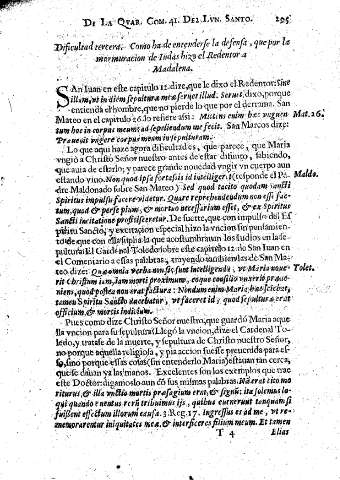 DE LA QVAR. COM. 41. DEL LVN. SANTO. 295
Dificultad tercera. Como ha de entenderse la defensa, que por la
murmuracion de Iudas hizo el Redentor a
Madalena.
SAn Iuan en este capitulo 12. dize, que le dixo el Redentor: Sine
illam, vt in diem sepulturæ meæ seruet illud. Seruet, dixo, porque
entienda el hombre, que no pierde lo que por el derrama. San
Mateo en el capitulo 26. lo refiere assi: Mittens enim hæc vnguen Mat. 26.
tum hoc in corpus meum: ad sepeliendum me fecit. San Marcos dize:
Præuenit vngere corpus meum in sepulturam.
Lo que aqui haze agora dificultad es, que parece, que Maria
vngiò a Christo Señor nuestro antes de estar difunto, sabiendo,
que auia de estarlo, y parece grande nouedad vngir vn cuerpo aun
estando viuo. Non quod ipsa fortassis id intelligeret (responde el Pa Maldo.
dre Maldonado sobre San Mateo) Sed quod tacito quodam sancti
Spiritus impulsu faceret
quod & perse pium, & mortuo necessarium esset, & ex Spiritus
Sancti incitatione proficisceretur. De suerte, que con impulso del Es
piritu Santo, y excitacion especial hizo la vncion sin pensamien-
to de que con ella suplia la que acostumbrauan los Iudios en la se-
pultura. El Cardenal Toledo sobre este capitulo 12. de San Iuan en
el Comentario a essas palabras, trayendo tambien las de San Ma-
teo, dize: Quæ omnia verba non sic sunt intelligenda, vt Maria noue- Tolet.
rit Christum iam iam mori proximum, eoque consilio vnxerit præue-
niens, quod postea non erat factura: Nondum enim Maria hæc sciebat,
tamen Spiritu Sancto ducebatur, vt faceret id, quod sepulturæ erat
officium, & mortis indicium.
Pues como dize Christo Señor nuestro, que guardò Maria aque
lla vncion para su sepultura? Llegò la vncion, dize el Cardenal To-
ledo, y tratase de la muerte, y sepultura de Christo nuestro Señor,
no porque aquella religiosa, y pia accion fuesse preuenida para es-
so, sino porque essas cosas (sin entenderlo Maria) estauan tan cerca,
que se dauan ya las manos. Excelentes son los exemplos que trae
este Doctor: digamoslo aun có sus mismas palabras. Næ erat cito mo
riturus, & illa vnctio mortis præsagium erat, & signū: ita solemus lo-
qui quando euentus rerū tribuimus ijs, quibus euenerunt tanquam si
fuissent effectum illorum causa. 3. Reg. 17. Ingressus es ad me, vt re-
memorarentur iniquitates meæ, & interficeres filium meum. Et tamen
T 4 Elias